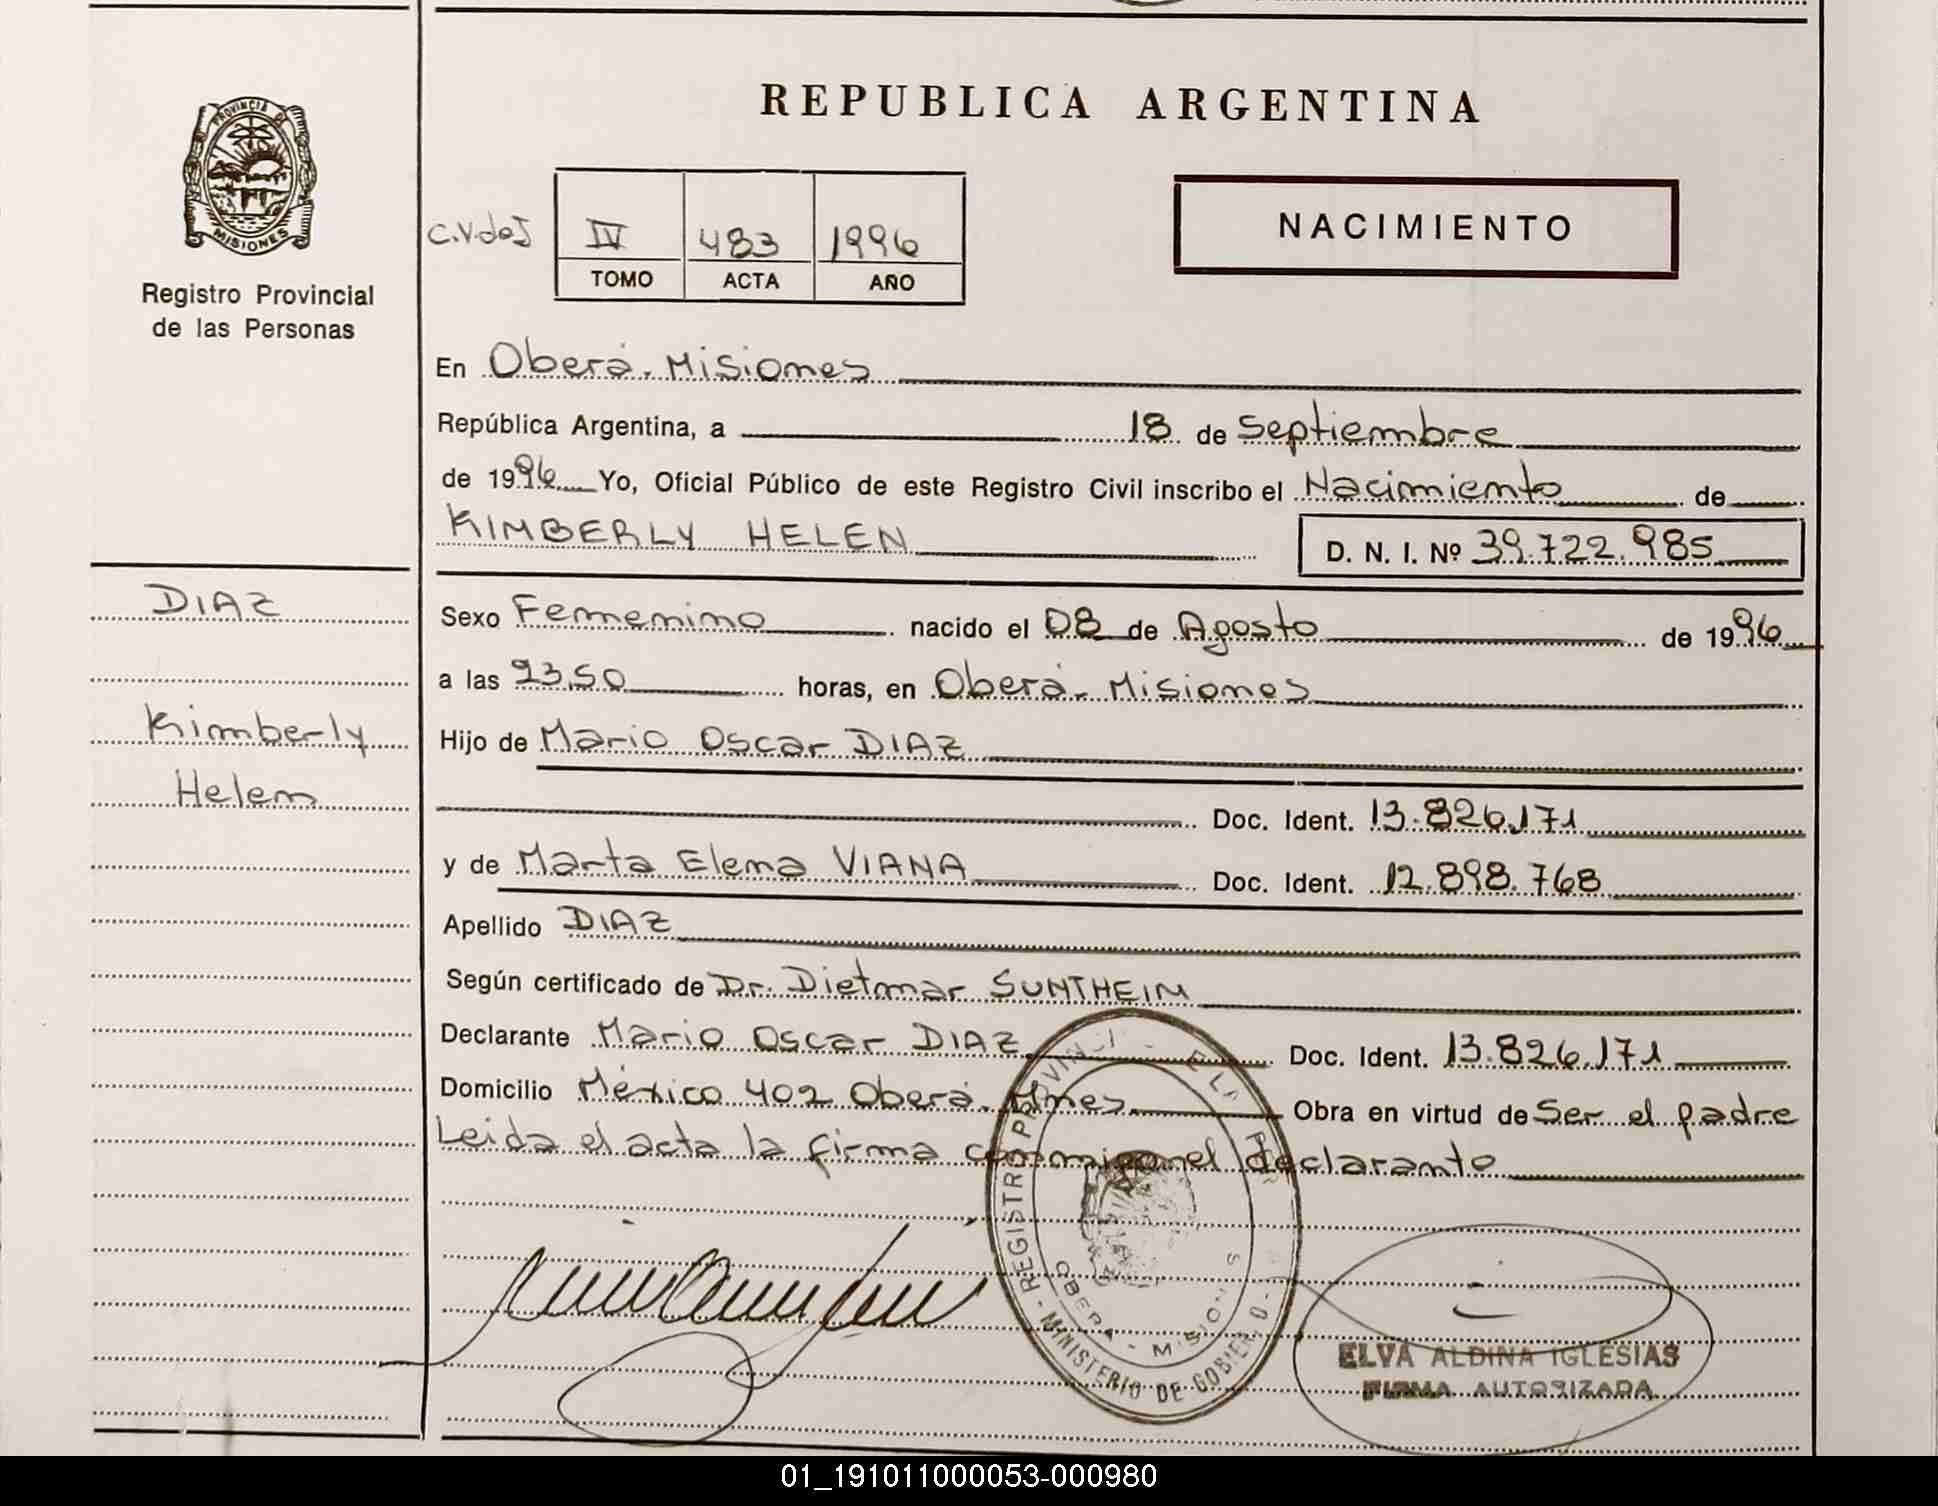 REPUBLICA ARGENTINA
PROVINCIA DE
MISIONES
Registro Provincial
de las Personas
C.V.deJ
IV 483 1996
TOMO ACTA AÑO
NACIMIENTO
En Oberá. Misiones
República Argentina, a 18 de Septiembre
de 1996 Yo, Oficial Público de este Registro Civil inscribo el Nacimiento de
KIMBERLY HELEN D. N. I. Nº 39.722.985
DIAZ
Kimberly
Helen
Sexo Femenino nacido el 08 de Agosto de 1996
a las 23,50 horas, en Oberá. Misiones
Hijo de Mario Oscar DIAZ
Doc. Ident. 13.826.171
y de Marta Elena VIANA Doc. Ident. 12.898.768
Apellido DIAZ
Según certificado de Dr. Dietmar SUNTHEIM
Declarante Mario Oscar DIAZ Doc. Ident. 13.826.171
Domicilio México 402 Oberá. Mnes Obra en virtud de Ser el padre
Leida el acta la firma conmigo el declarante
REGISTRO
OBERA - MISIONES
MINISTERIO DE GOBIERNO
ELVA ALDINA IGLESIAS
FIRMA AUTORIZADA
01_191011000053-000980